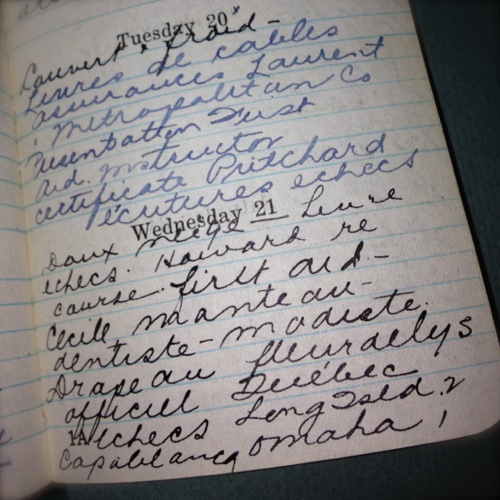 Tuesday 20
Couvert. froid -
Livres de cables
assurances Laurent
Metropolitan Co
Presentation Twist
aid. instructor
certificate Pritchard
ecritures echecs
Wednesday 21
Doux neige Livre
echecs. Howard re
course. first aid -
Cecile manteau -
dentiste - modiste.
Drapeau fleurdelys
officiel Québec
echecs Long Isld.
Capablanca Omaha